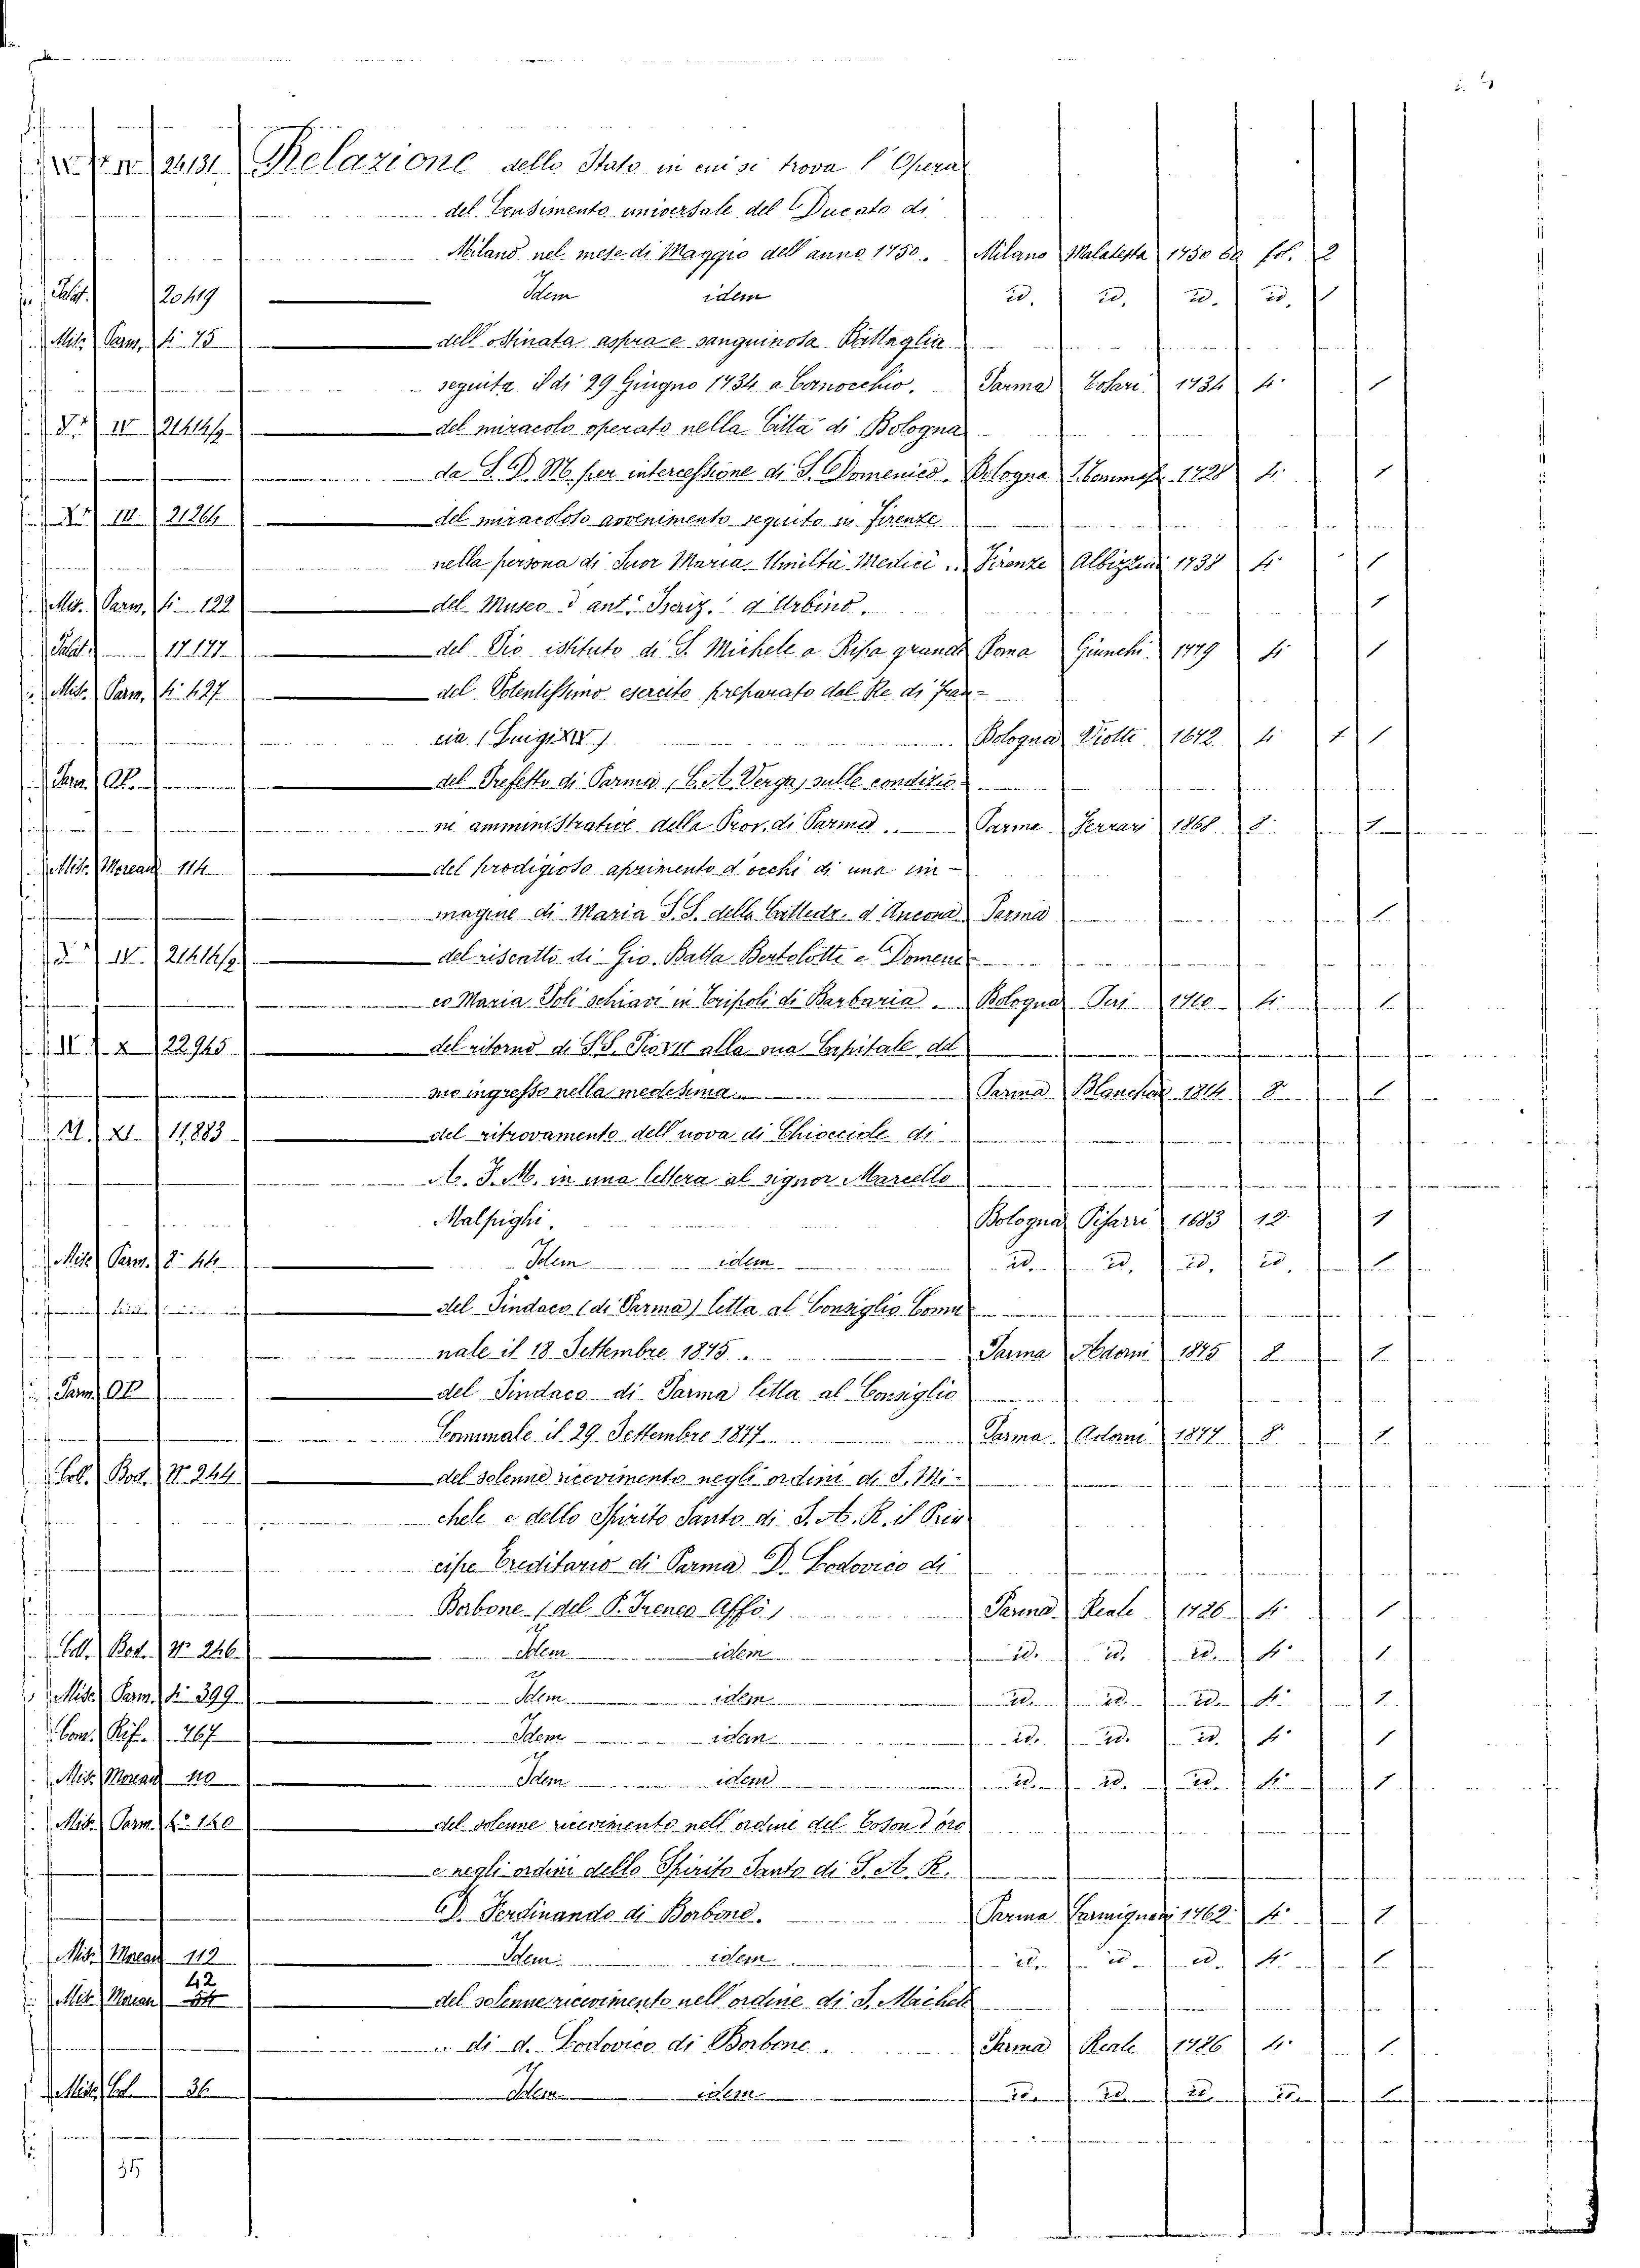 Relazione dello Stato in cui si trova l'Opera
del Censimento universale del Ducato di
Milano nel mese di Maggio dell'anno 1750. Milano Malatesta 1750 fol. 2
Palat. 20419 Idem idem id. id. id. id. 1
Misc. Parm. 4° 75 dell'ostinata aspra e sanguinosa Battaglia
seguita il di 29 Giugno 1734 a Cornocchio. Parma 1734 4° 1
IV 21414/9 del miracolo operato nella Città di Bologna
da S. D. M. per intercessione di S. Domenico. Bologna 1728 4° 1
III 21264 del miracoloso avvenimento seguito in Firenze
nella persona di Suor Maria Umiltà Medici .. Firenze Albizzini 1738 4° 1
Misc. Parm. 4° 122 del Museo d'ant. d'Urbino. 1
Palat. 17.177 del Pio istituto di S. Michele a Ripa grande Roma Giunchi 1779 4° 1
Misc. Parm. 4° 427 del Potentissimo esercito preparato dal Re di Fran-
cia (Luigi XIV.) Bologna Viotti 1672 4° 1 1
Parm. del Prefetto di Parma (C. A. Verga) sulle condizio-
ni amministrative della Prov. di Parma .. Parma Ferrari 1868 8° 1
Misc. Moreau 114 del prodigioso aprimento d'occhi di una im-
magine di Maria S.S. della Cattedr. d'Ancona Parma 1
IV. 21414/9 del riscatto di Gio. Batta Bertolotti e Domeni-
co Maria Poli schiavi in Tripoli di Barbaria . Bologna Peri 1710 4° 1
II X 22945 del ritorno di S.S. Pio VII alla sua Capitale del
suo ingresso nella medesima. Parma Blanchon 1814 8° 1
XI 11,883 del ritrovamento dell'uova di Chiocciole di
A. F. M. in una lettera al signor Marcello
Malpighi. Bologna Pisarri 1683 12° 1
Misc. Parm. 8° 44 Idem idem id. id. id. id. 1
del Sindaco (di Parma) letta al Consiglio Comu-
nale il 18 Settembre 1875 . Parma Adorni 1875 8 1
Parm. del Sindaco di Parma letta al Consiglio
Comunale il 29 Settembre 1877 Parma Adorni 1877 8° 1
Coll. Bod. N° 244 del solenne ricevimento negli ordini di S. Mi-
chele e dello Spirito Santo di S. A. R. il Prin-
cipe Ereditario di Parma D. Lodovico di
Borbone (del P. Ireneo Affò) Parma Reale 1786 4° 1
Coll. Bod. N° 246 Idem idem id. id. id. 4° 1
Misc. Parm. 4° 399 Idem idem id. id. id. 4° 1
Com. Rif. 767 Idem idem id. id. id. 4° 1
Misc. Moreau 110 Idem idem id. id. id. 4° 1
Misc. Parm. 4° 140 del solenne ricevimento nell'ordine del Toson d'oro
e negli ordini dello Spirito Santo di S. A. R.
D. Ferdinando di Borbone. Parma Carmignani 1762 4° 1
Misc. Moreau 112 Idem idem id. id. id. 4° 1
Misc. Moreau 42 del solenne ricevimento nell'ordine di S. Michele
di d. Lodovico di Borbone . Parma Reale 1786 4° 1
Misc. 36 Idem idem id. id. id. id. 1
35